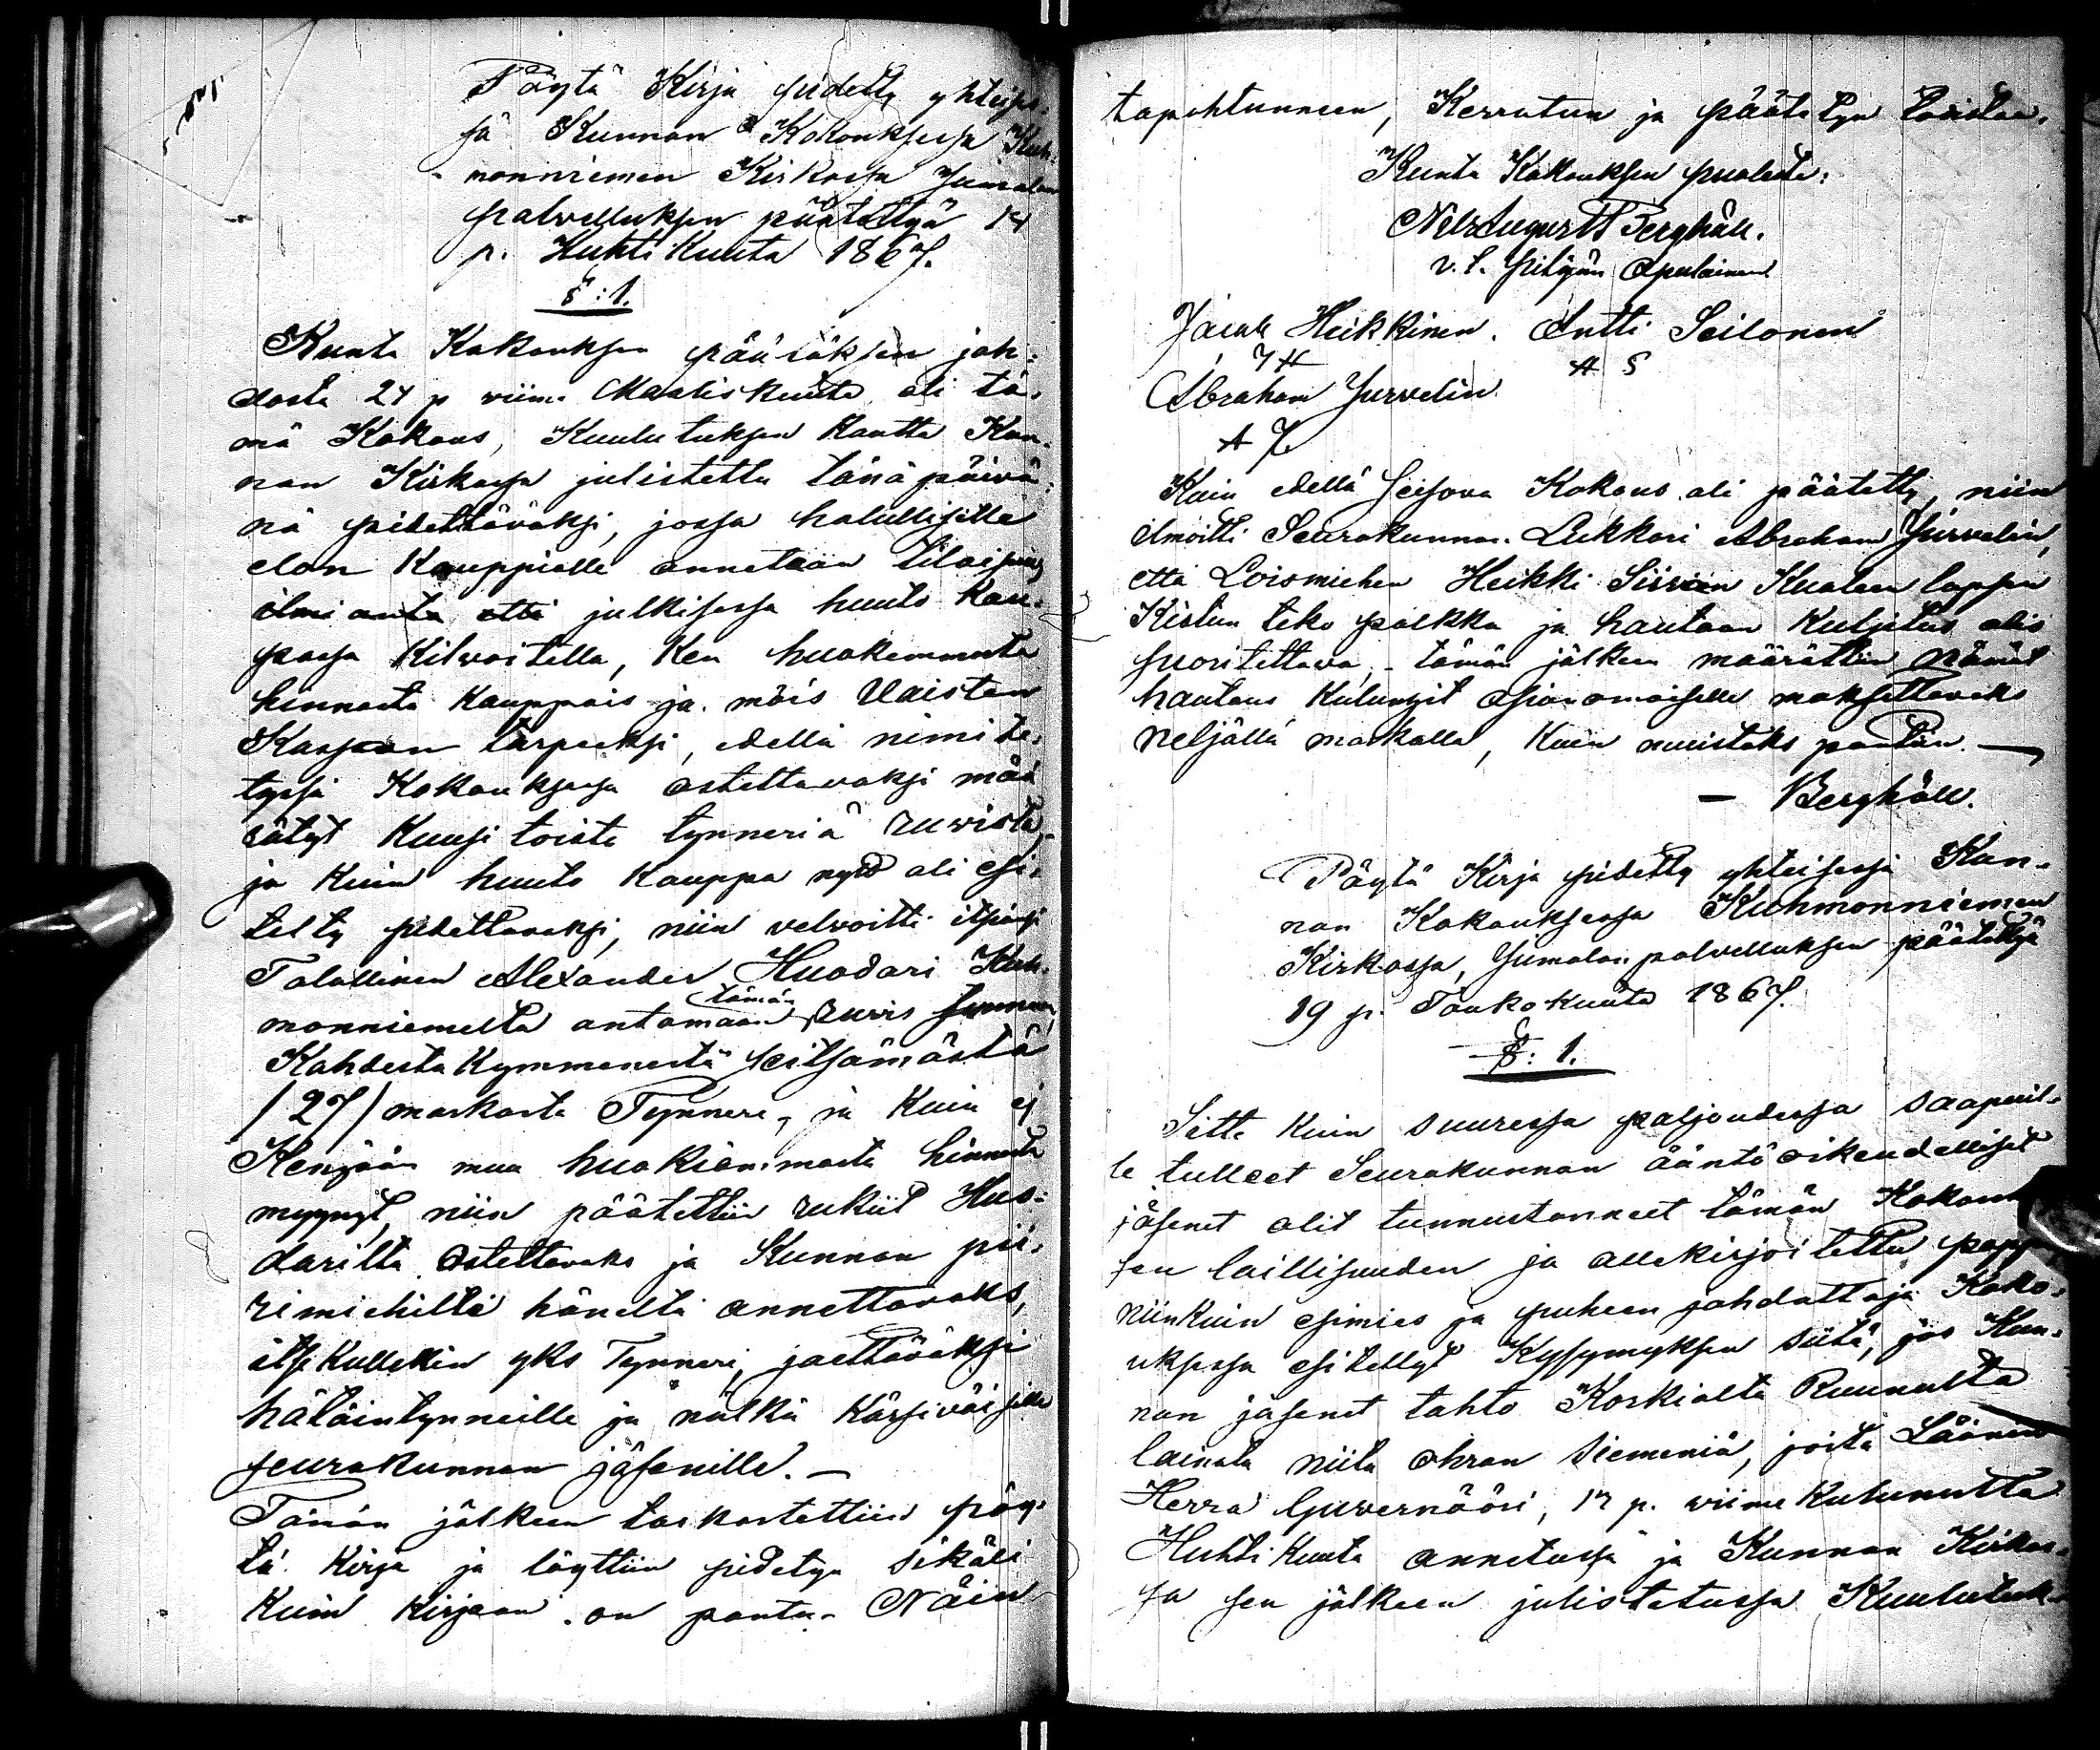 Pöytä Kirja pidetty yhteises-
sä Kunnan Kokouksessa Kuh-
monniemen Kirkossa Jumalan
palvelluksen päätettyä 14
p. Huhti Kuuta 1867.
§: 1.
Kunta Kokouksen pääsäksen joh-
dosta 24 p viime Maaliskuuta oli tä-
mä Kokous, Kuulutuksen kautta Kun-
nan Kirkossa julistettu tänäpäivä-
nä pidettäväksi, jossa halullisille
elon Kauppialle annetaan tilaisuus
julkisessa huuto kau-
passa Kilvoitella, Ken huokemmasta
hinnasta Kauppais ja möis Vaisten
Kassan tarpeeksi, edellä nimite-
tyssä Kokouksessa ostettavaksi mää
rätyt Kuusitoista tynneriä ruvista,
ja Kuin huuto Kauppa nyt oli esi-
telty pidettäväksi, niin velvoitti itsensä
Talollinen Alexander Huodari Kuh-
monniemeltä antamaan tämän ruvis summan
Kahdesta Kymmenestä seitsämästä
/27/ markasta Tynneri, ja Kuin ej
Kenjään muu huokiammasta hinnasta
myynyt, niin päätettiin rukiit Huo-
darilta ostettavaks ja Kunnan pii-
rimiehiltä häneltä annettavaks,
itse Kullekin yks Tynneri, jaettäväksi
hätäintynneille ja nälkä Kärsiväisille
seurakunnan jäsenille. —
Tämän jälkeen tarkastettiin pöy-
tä Kirja ja löyttiin pidetyn sikäli
Kuin Kirjaan on pantu. Näin
tapahtunneen, Kerrotun ja päätetyn todistaa,
Kunta Kokouksen puolesta:
Nils August Berghäll.
v. t. Pitäjän Apulainen
Jacob Heikkinen. Antti Seilonen
J H A S
Abraham Jurvelin
A J
Kuin edellä seisova Kokous oli päätetty, niin
ilmoitti Seurakunnan Lukkari Abraham Jurvelin,
että Loismiehen Heikki Siiven Kuolen lappsen
Kistun teko palkka ja hautaan Kuljetus olis
suoritettava, - tämän jälkeen määrättiin nämät
hautaus Kulungit asianomaiselle maksettavaks
neljällä markalla, Kuin muistoks pantiin. —
— Berghäll.
Pöytä Kirja pidetty yhteisessä Kun-
nan Kokouksessa Kuhmonniemen
Kirkossa, Jumalan palvelluksen päätettyä
19 p. Toukokuuta 1867.
§: 1.
Sitte Kuin suuressa paljoudessa saapuil-
le tulleet Seurakunnan ääntö oikeudelliset
jäsenet olit tunnustanneet tämän Kokouk-
sen laillisuuden ja allekirjoitettu pappi
niinkuin esimies ja puheen johdattaja Koko-
uksessa esitellyt Kysymyksen siitä, jos Kun-
nan jäsenet tahto Korkialta Ruunulta
lainata niitä ohran siemeniä, joita Läänin
Herra Guvernööri, 17 p. viime Kulunutta
Huhti Kuuta annetussa ja Kunnan Kirkos-
sa sen jälkeen julistetussa Kuulutuk-